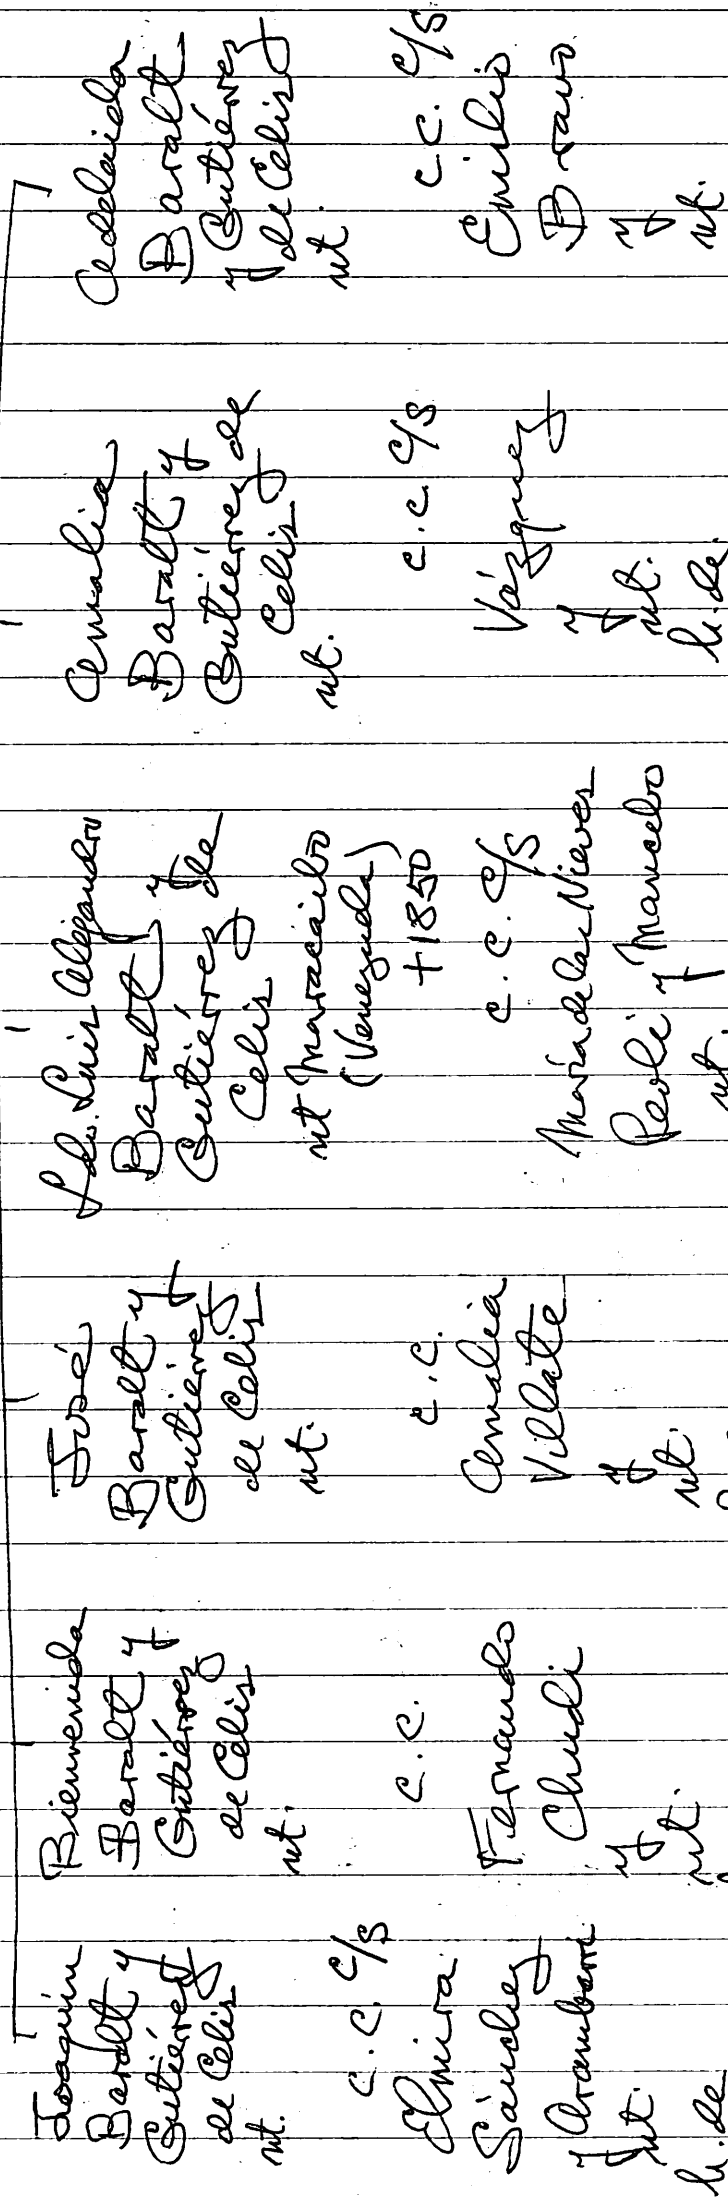 Joaquín
Baralt y
Gutiérrez
de Celis
nt.
c.c. c/s
Elmira
Sánchez
y Arambarri
nt.
h. de
Bienvenida
Baralt y
Gutiérrez
de Celis
nt.
c.c.
Fernando
Chudi
y
nt.
José
Baralt y
Gutiérrez
de Celis
nt.
c.c.
Amalia
Villate
y
nt.
Ldo. Luis Alejandro
Baralt y
Gutiérrez de
Celis
nt Maracaibo
(Venezuela)
+1850
c.c. c/s
María de las Nieves
Peoli y Mancebo
nt.
Amalia
Baralt y
Gutiérrez de
Celis
nt.
c.c. c/s
Vázquez
y
nt.
h. de.
Adelaida
Baralt
y Gutiérrez
de Celis
nt.
c.c. c/s
Emilio
Bravo
y
nt.